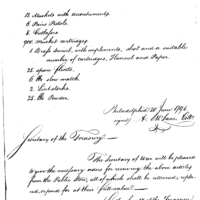 12 Muskets with accoutrements.
6 Pairs Pistols.
8 Cutlasses
musket cartridges.
1 Brass Swivel, with implements, shot and a suitable
number of cartridges, Flannel and Paper.
25 spare flints.
6 lbs slow match.
2 Linstocks.
25 lbs Powder.
Philadelphia 20 June 1794.
signed
Secretary of the Treasury.
The Secretary of War will be pleased
to give the necessary orders for receiving the above articles
from the Public Store, all of which shall be returned, replaced
or paid for at their full value.